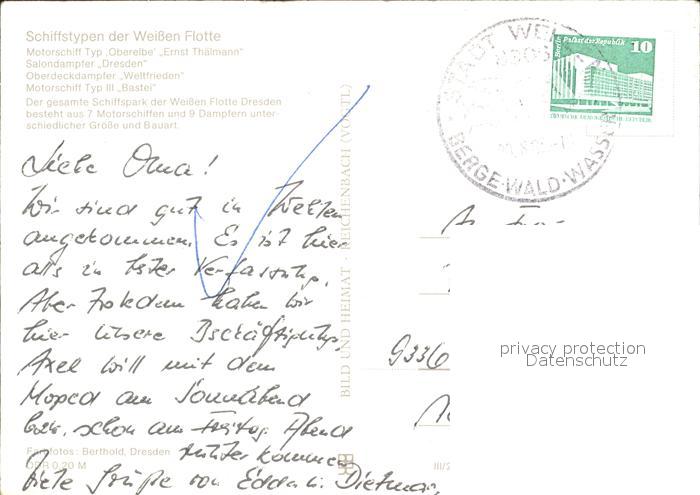 Schiffstypen der Weißen Flotte
Motorschiff Typ „Oberelbe“ „Ernst Thälmann“
Salondampfer „Dresden“
Oberdeckdampfer „Weltfrieden“
Motorschiff Typ III „Bastei“
Der gesamte Schiffspark der Weißen Flotte Dresden
besteht aus 7 Motorschiffen und 9 Dampfern unter-
schiedlicher Größe und Bauart.
Liebe Oma!
Wir sind gut in Wehlen
angekommen. Es ist hier
alls in bster Verfassung.
Aber trotzdem haben wir
hier unsere Beschäftigung.
Axel will mit dem
Moped am Sonnabend
bzw. schon am Freitag Abend
runter kommen
Viele Grüße von Edda u. Dietmar.
Farbfotos: Berthold, Dresden
DDR 0,20 M
BILD UND HEIMAT · REICHENBACH (VOGTL)
III/
STADT WEHLEN
BERGE·WALD·WASSER
Berlin, Palast der Republik 10
9336
privacy protection
Datenschutz